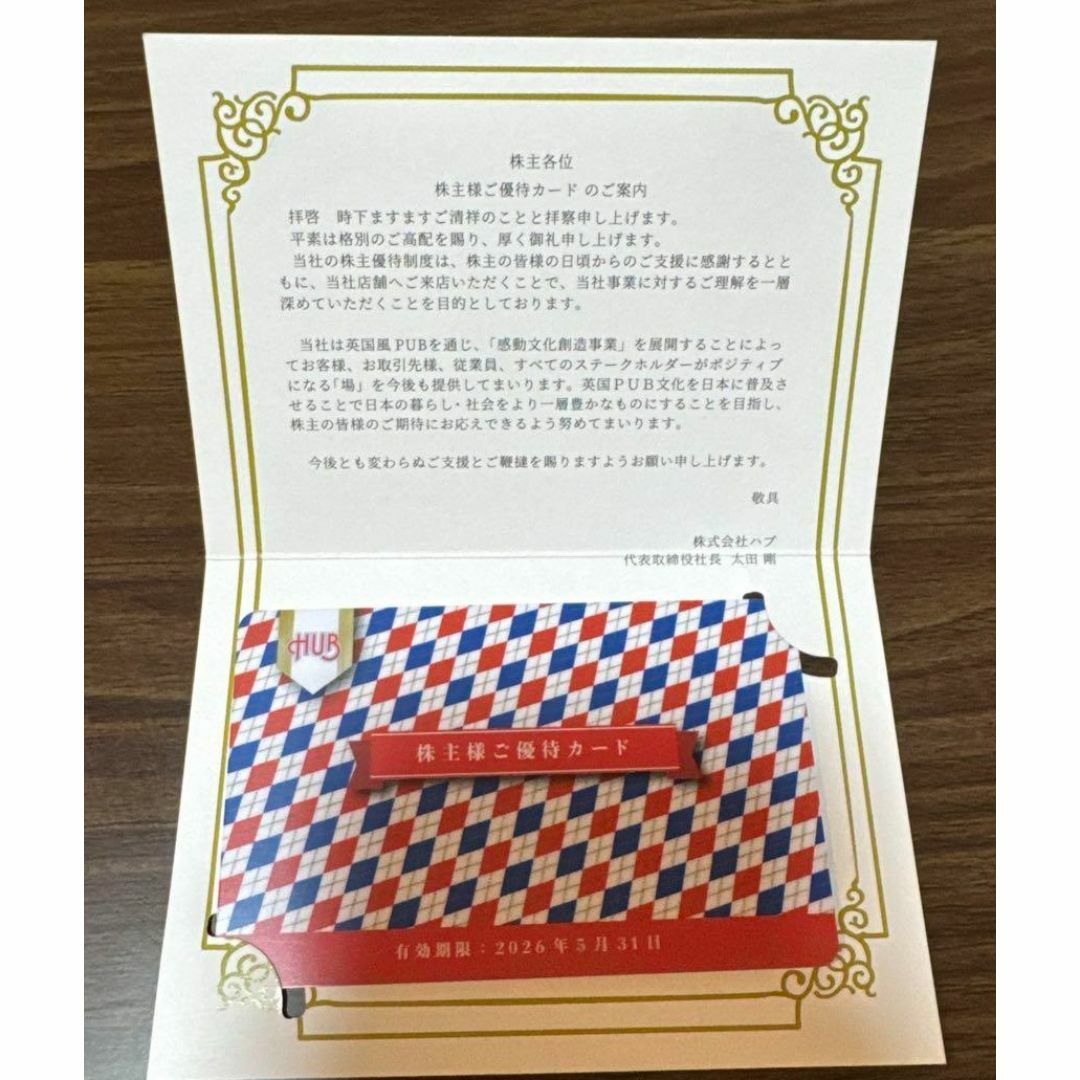 株主各位
株主様ご優待カード のご案内
拝啓　時下ますますご清祥のことと拝察申し上げます。
平素は格別のご高配を賜り、厚く御礼申し上げます。
当社の株主優待制度は、株主の皆様の日頃からのご支援に感謝するとと
もに、当社店舗へご来店いただくことで、当社事業に対するご理解を一層
深めていただくことを目的としております。
当社は英国風PUBを通じ、「感動文化創造事業」を展開することによっ
てお客様、お取引先様、従業員、すべてのステークホルダーがポジティブ
になる「場」を今後も提供してまいります。英国PUB文化を日本に普及さ
せることで日本の暮らし・社会をより一層豊かなものにすることを目指し、
株主の皆様のご期待にお応えできるよう努めてまいります。
今後とも変わらぬご支援とご鞭撻を賜りますようお願い申し上げます。
敬具
株式会社ハブ
代表取締役社長 太田 剛
HUB
株主様ご優待カード
有効期限：2026年5月31日